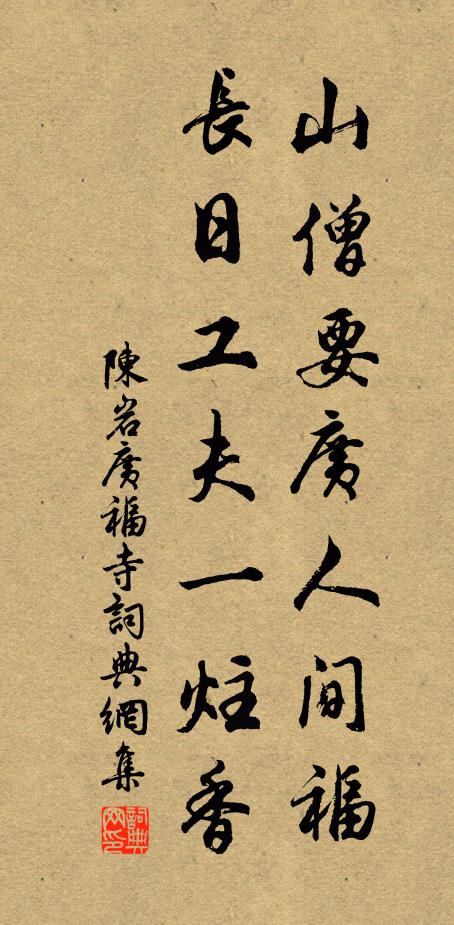 山僧要廣人間福
長日工夫一炷香
陳岩廣福寺詞典網集
詞典网印